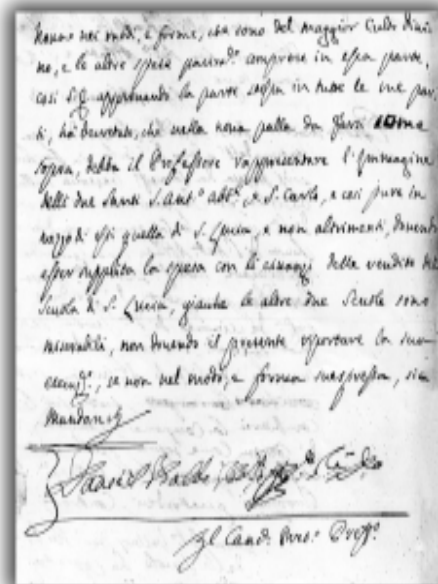 ranno nei modi, e forme, che sono del maggior Culto Divi
no, e le altre spese comprese in essa parte,
così S. E. approvando la parte stessa in tutte le sue par
ti, hà decretato, che nella nova palla da farsi come
sopra, debba il Professore rappresentare l'Immagine
delli due Santi S. Ant.º Abb.e, e S. Carlo, e così pure in
mezzo di essi quella di S. Lucia, e non altrimenti, dovendo
esser supplita la spesa con li civanzi delle vendite del
Scuola di S. Lucia, giacchè le altre due Scuole sono
miserabili, non dovendo il presente riportare la sua
se non nel modo, e forma suespressa, sic
Mandans
Daniel Balbi
Il Canc.